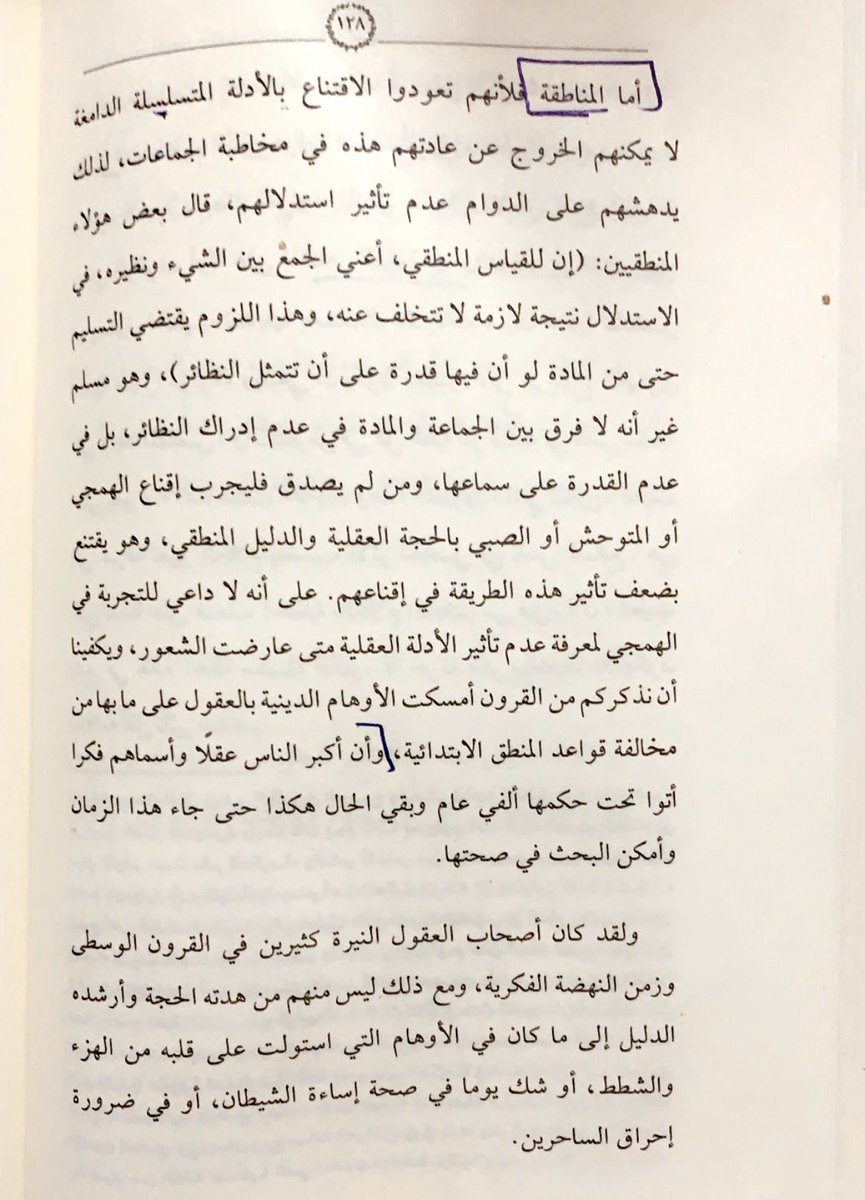 ١٢٨
أما المناطقة فلأنهم تعودوا الاقتناع بالأدلة المتسلسلة الدامغة
لا يمكنهم الخروج عن عادتهم هذه في مخاطبة الجماعات، لذلك
يدهشهم على الدوام عدم تأثير استدلالهم، قال بعض هؤلاء
المنطقيين: (إن للقياس المنطقي، أعني الجمع بين الشيء ونظيره، في
الاستدلال نتيجة لازمة لا تتخلف عنه، وهذا اللزوم يقتضي التسليم
حتى من المادة لو أن فيها قدرة على أن تتمثل النظائر)، وهو مسلم
غير أنه لا فرق بين الجماعة والمادة في عدم إدراك النظائر، بل في
عدم القدرة على سماعها، ومن لم يصدق فليجرب إقناع الهمجي
أو المتوحش أو الصبي بالحجة العقلية والدليل المنطقي، وهو يقتنع
بضعف تأثير هذه الطريقة في إقناعهم. على أنه لا داعي للتجربة في
الهمجي لمعرفة عدم تأثير الأدلة العقلية متى عارضت الشعور، ويكفينا
أن نذكركم من القرون أمسكت الأوهام الدينية بالعقول على ما بها من
مخالفة قواعد المنطق الابتدائية، وأن أكبر الناس عقلًا وأسماهم فكرا
أتوا تحت حكمها ألفي عام وبقي الحال هكذا حتى جاء هذا الزمان
وأمكن البحث في صحتها.
ولقد كان أصحاب العقول النيرة كثيرين في القرون الوسطى
وزمن النهضة الفكرية، ومع ذلك ليس منهم من هدته الحجة وأرشده
الدليل إلى ما كان في الأوهام التي استولت على قلبه من الهزء
والشطط، أو شك يوما في صحة إساءة الشيطان، أو في ضرورة
إحراق الساحرين.